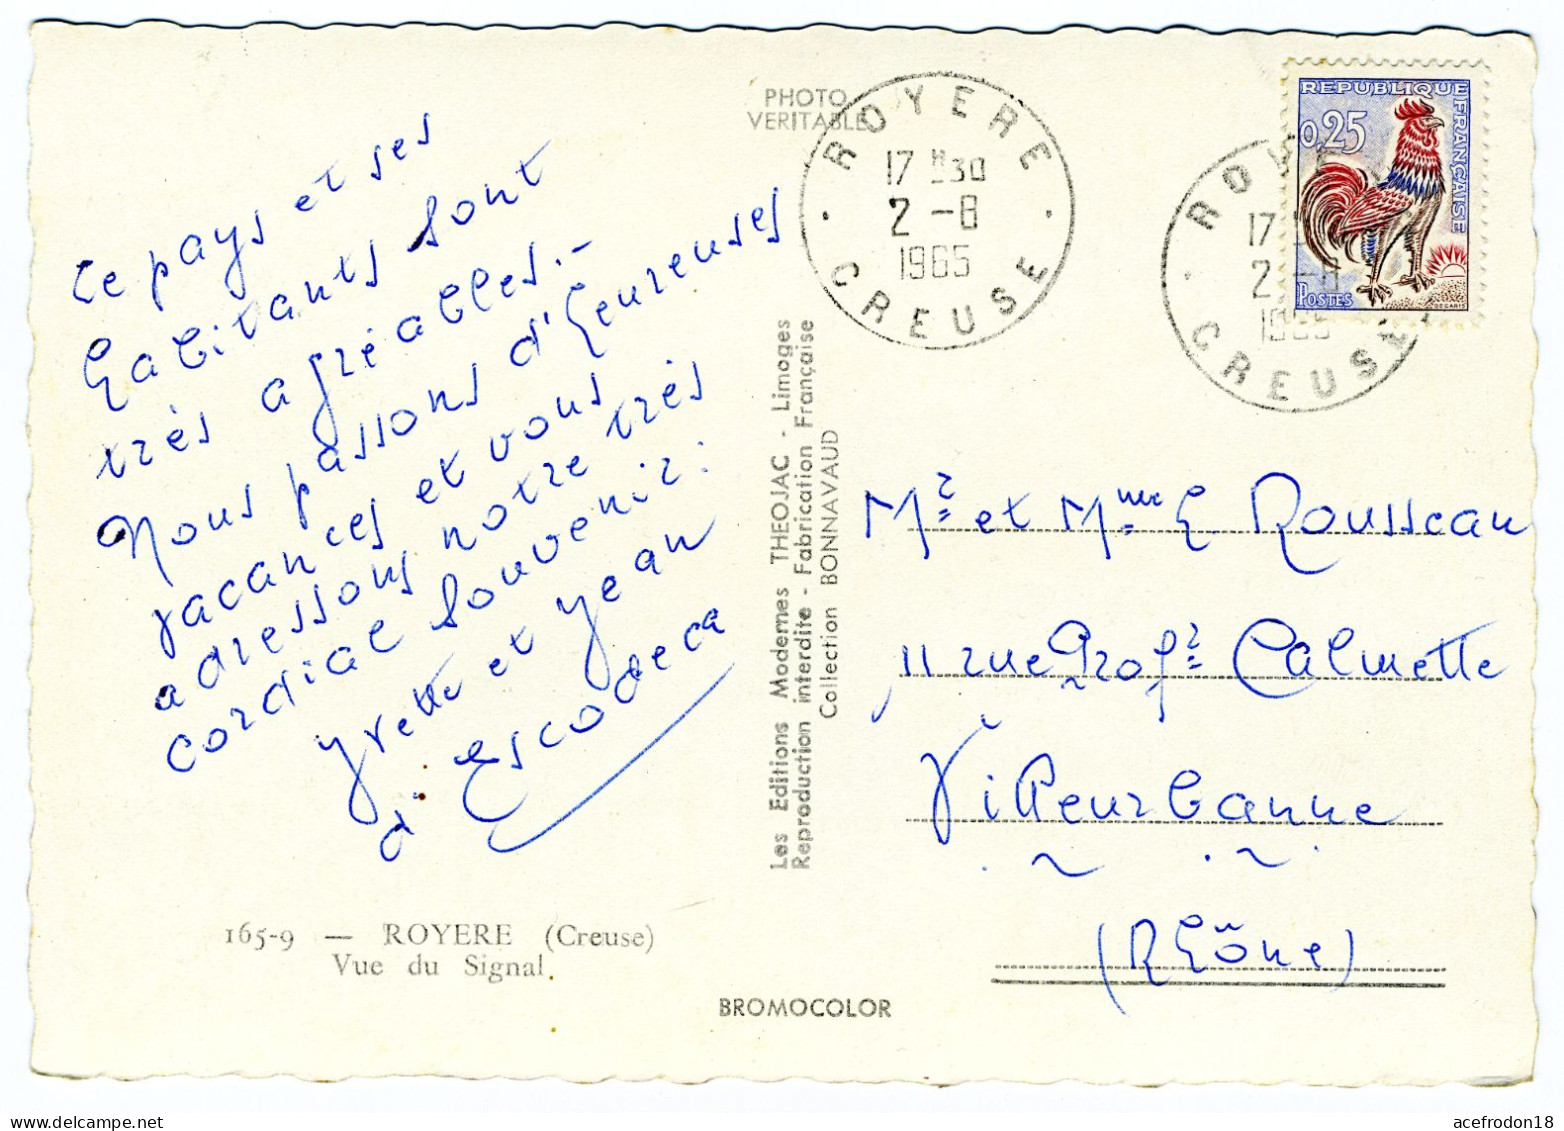 ce pays et ses
habitants sont
très agréables.-
Nous passons d'heureuses
vacances et vous
adressons notre très
cordial souvenir:
Yvette et Jean
d'Escodeca
165-9 — ROYERE (Creuse)
Vue du Signal.
BROMOCOLOR
PHOTO
VERITABLE
Les Editions Modernes THEOJAC - Limoges
Reproduction interdite - Fabrication Française
Collection BONNAVAUD
ROYERE
17 H 30
2 - 8
1965
CREUSE
ROYERE
17
2 - 8
1965
CREUSE
REPUBLIQUE FRANÇAISE
0,25
POSTES
DECARIS
Mr et Mme E Rousseau
11 rue Profr Calmette
Villeurbanne
(Rhône)
acefrodon18